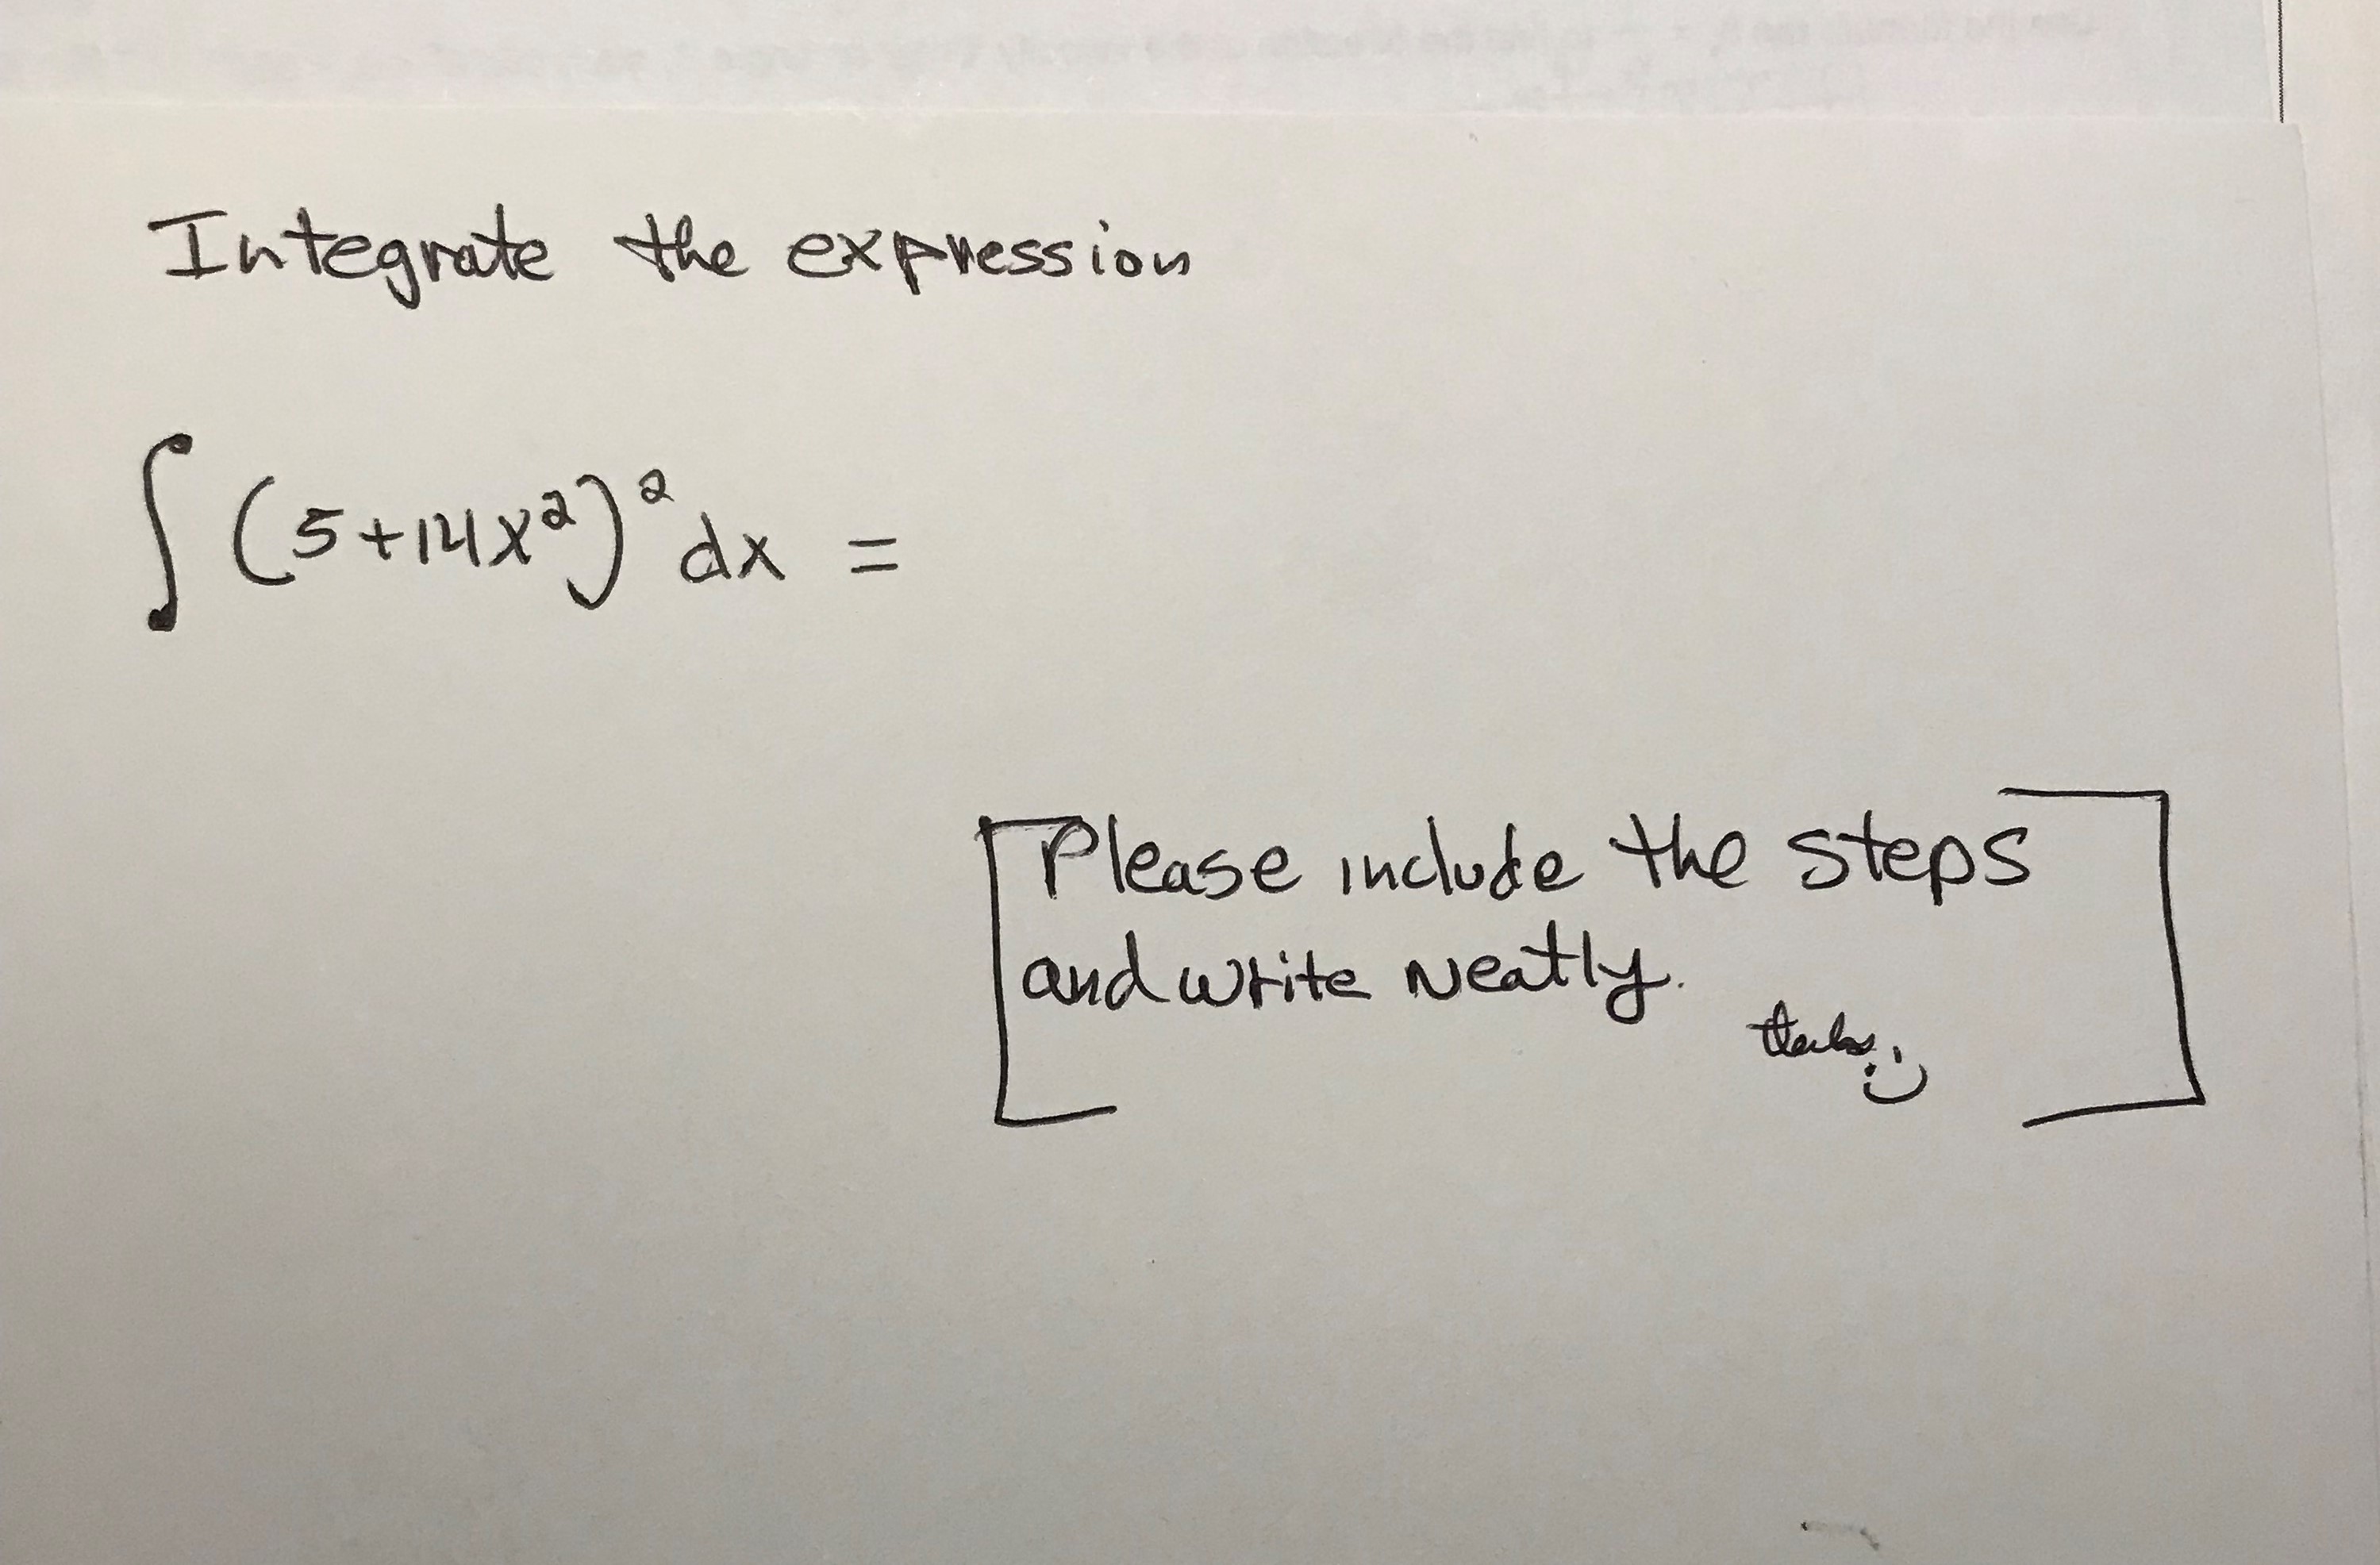 Integrate the expression
∫ (5+14x²)² dx =
Please include the steps
and write neatly.
thanks :)